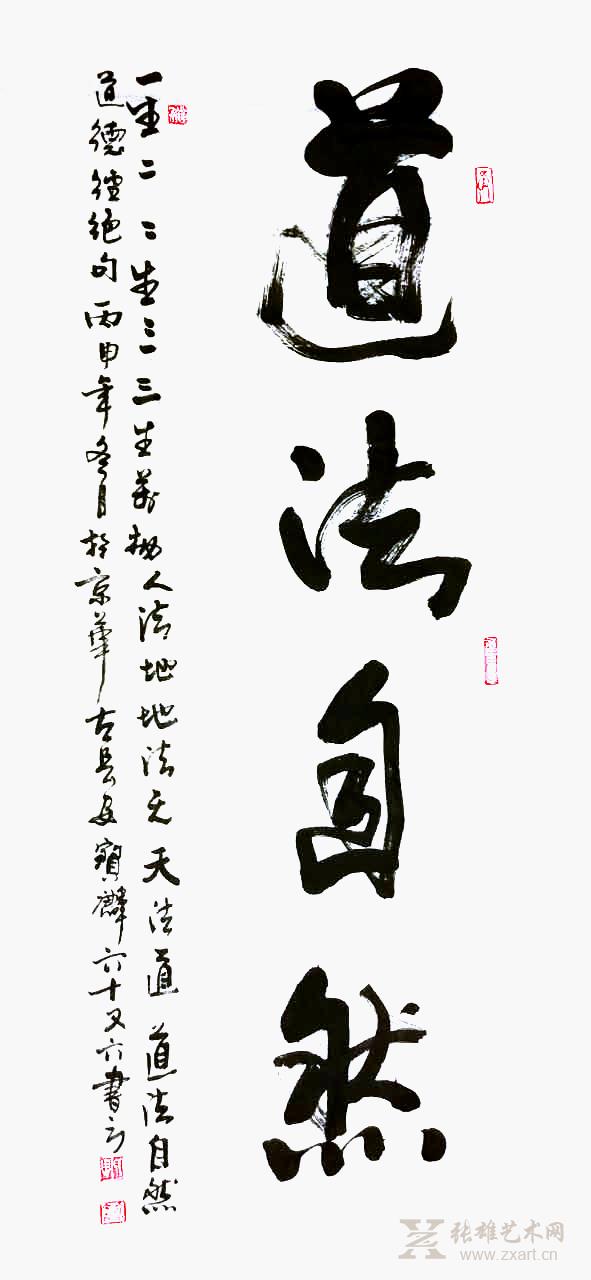 道法自然
一生二二生三三生萬物人法地地法天天法道道法自然
道德經絕句丙申年冬月於京華古長安寶麟六十又六書
张雄艺术网
www.zxart.cn